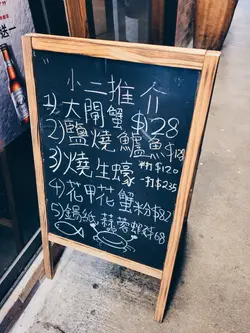 小二推介
1) 大閘蟹 $128
2) 鹽燒鱸魚 $118
3) 燒生蠔 半打 $120
一打 $235
4) 花甲花蟹米粉 $82
5) 錫紙蒜蓉蝦 68
送一